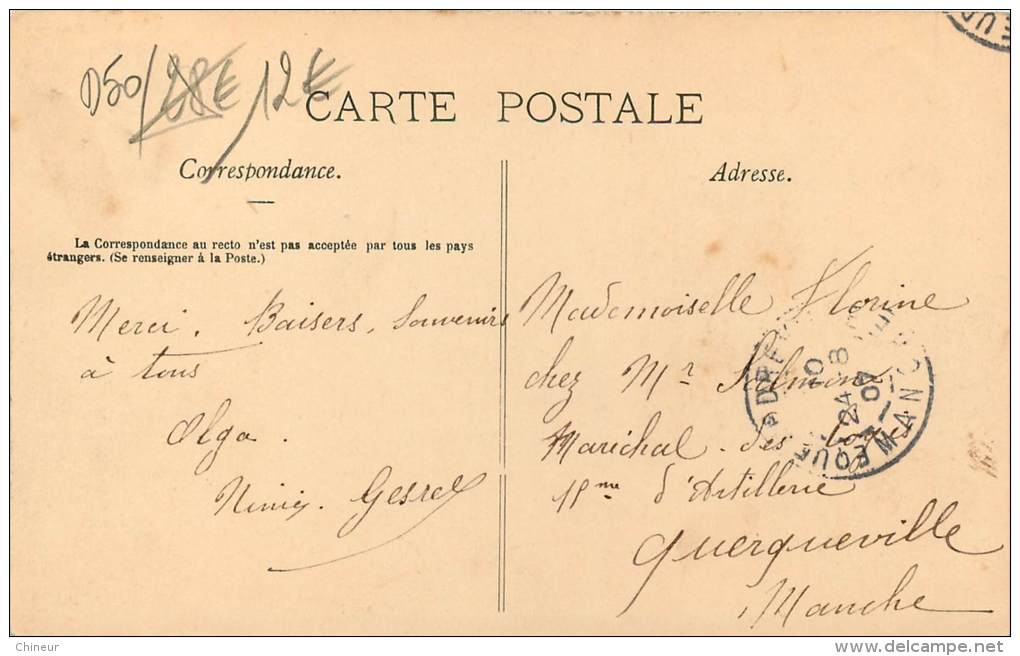 D50/28€/12€
CARTE POSTALE
Correspondance.
La Correspondance au recto n'est pas acceptée par tous les pays
étrangers. (Se renseigner à la Poste.)
Merci. Baisers, Souvenirs
à tous
Olga.
Adresse.
Mademoiselle Florine
chez Mr Salmon
Maréchal des logis
d'Artillerie
Querqueville
Manche
24-8
07
MANCHE
Chineur
delcampe.net